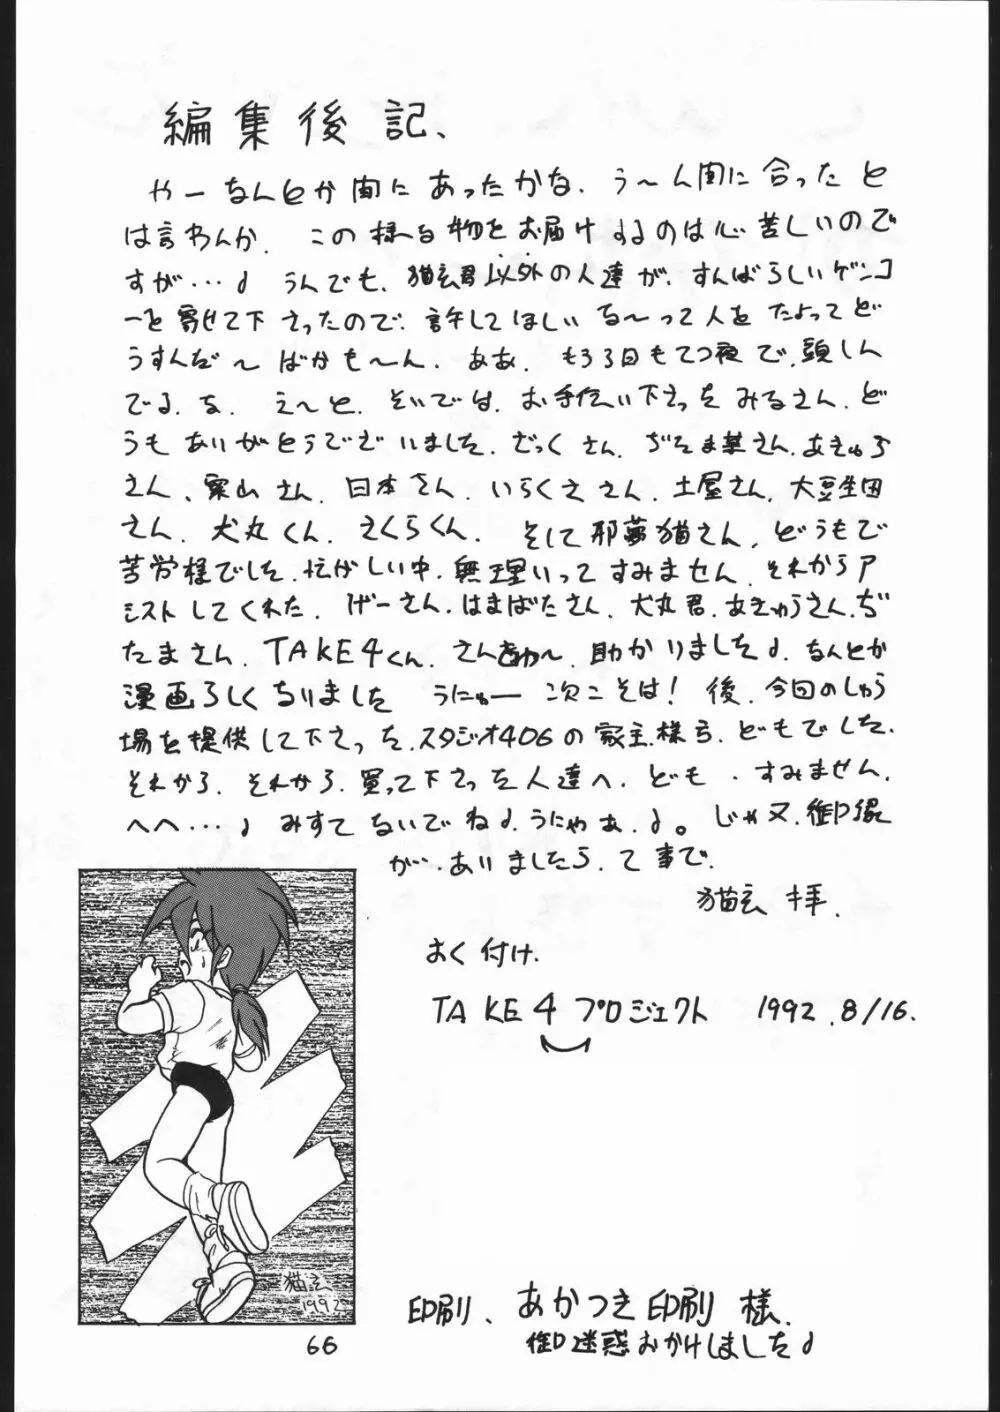 編集後記、
やーなんとか間にあったかな、う〜ん間に合ったと
は言わんか、この様な物をお届けするのは心苦しいので
すが…♩うんでも、猫玄君以外の人達が、すんばらしいゲンコ
ーを寄せて下さったので、許してほしいな〜って人をたよってど
うすんだ〜ばかも〜ん、ああ、もう3日もてつ夜で、頭しん
でるな、え〜と、ぞいでは、お手伝い下さったみなさん、ど
うもありがとうでございました、ざっくさん、ぢたま某さん、あきゅう
さん、栗山さん、日本さん、いらくささん、土屋さん、大豆生田
さん、犬丸くん、さくらくん、そして邪夢猫さん、どうもで
苦労様でした、忙がしい中、無理いってすみません、それからア
シストしてくれた、げーさん、はまばたさん、犬丸君、あきゅうさん、ぢ
たまさん、TAKE4くん、さんきゅ〜、助かりました♩、なんとか
漫画らしくなりました うにゅー 次こそは！後、今回のしゅら
場を提供して下さった、スタジオ406の家主様も、どもでした、
それから、それから、買って下さった人達へ、ども、すみません、
へへ…♩みすてないでね♩、うにゃぁ、♩。じゃ又、御縁
が…ありましたら、て事で、
猫玄 拝、
おく付け、
TAKE4プロジェクト 1992、8/16、
猫玄
1992
印刷、あかつき印刷 様、
御迷惑おかけしました♩
66